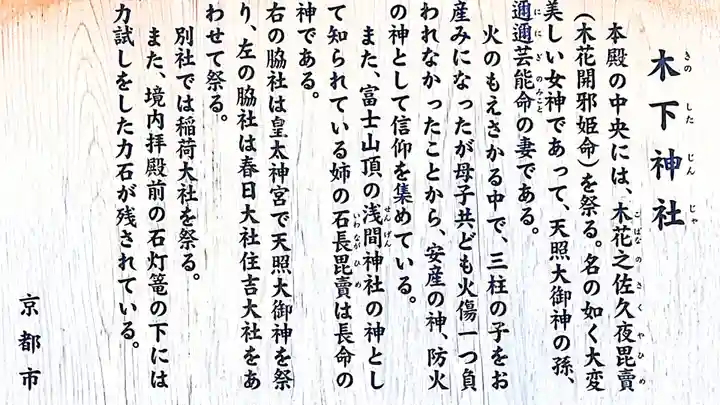 木下神社
きのしたじんじゃ
本殿の中央には、木花之佐久夜毘賣
こばなのさくやひめ
(木花開邪姫命)を祭る。名の如く大変
美しい女神であって、天照大御神の孫、
邇邇芸能命の妻である。
ににぎのみこと
火のもえさかる中で、三柱の子をお
産みになったが母子共ども火傷一つ負
われなかったことから、安産の神、防火
の神として信仰を集めている。
また、富士山頂の浅間神社の神とし
せんげん
て知られている姉の石長毘賣は長命の
いわながひめ
神である。
右の脇社は皇太神宮で天照大御神を祭
り、左の脇社は春日大社住吉大社をあ
わせて祭る。
別社では稲荷大社を祭る。
また、境内拝殿前の石灯篭の下には
力試しをした力石が残されている。
京都市